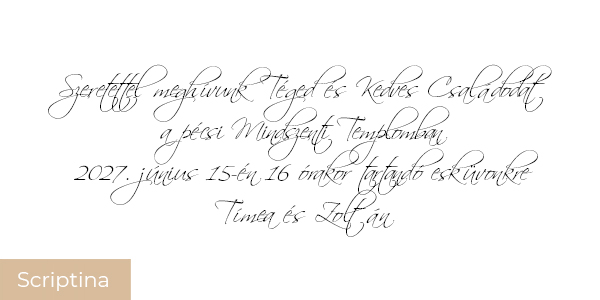 Szeretettel meghívunk Téged és Kedves Családodat
a pécsi Mindszenti Templomban
2027. június 15-én 16 órakor tartandó esküvonkre
Tímea és Zoltán
Scriptina